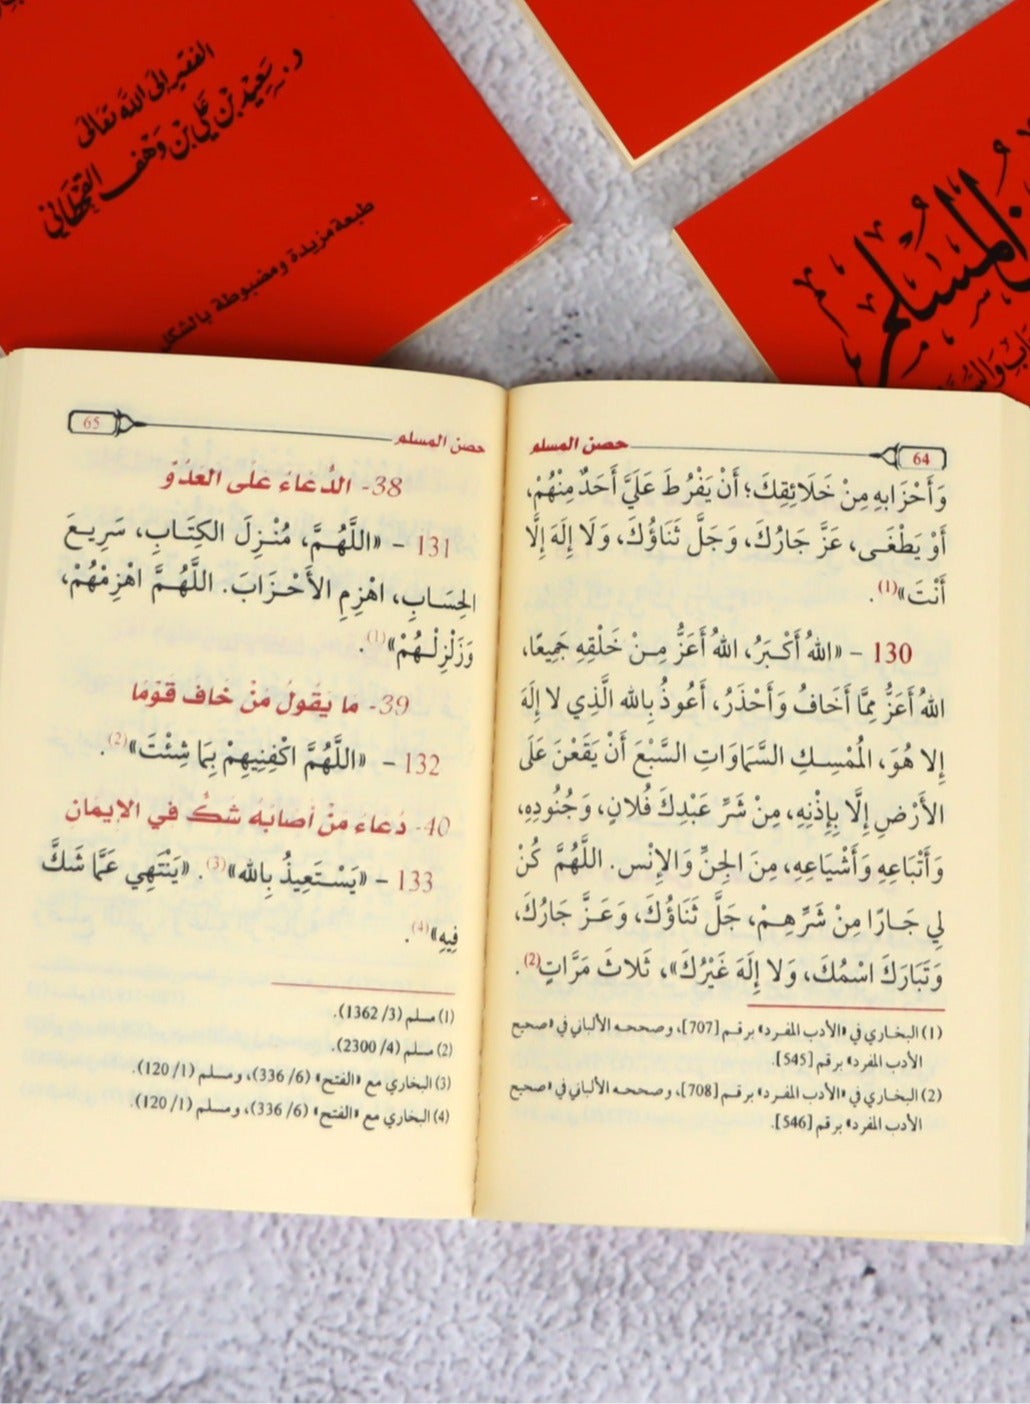 الفقير إلى الله تعالى
د. سَعِيْد بْن عَلي بْن وَهْف القَحْطَاني
طبعة مزيدة ومضبوطة بالشكل
المُسْلِم
حصن المسلم
64
وَأَحْزَابِهِ مِنْ خَلَائِقِكَ؛ أَنْ يَفْرُطَ عَلَيَّ أَحَدٌ مِنْهُمْ،
أَوْ يَطْغَـى، عَزَّ جَارُكَ، وَجَلَّ ثَنَاؤُكَ، وَلَا إِلَهَ إِلَّا
أَنْتَ»(1).
130 - «اللهُ أَكْـبَرُ، اللهُ أَعَزُّ مِـنْ خَلْقِهِ جَمِيعًا،
اللهُ أَعَزُّ مِمَّا أَخَافُ وَأَحْذَرُ، أَعُوذُ بِالله الَّذِي لا إِلَهَ
إِلا هُوَ، المُمْسِـكِ السَّمَاوَاتِ السَّبْعَ أَنْ يَقَعْنَ عَلَى
الأَرْضِ إِلَّا بِإِذْنِهِ، مِنْ شَرِّ عَبْدِكَ فُلانٍ، وَجُنُودِهِ،
وَأَتْبَاعِهِ وَأَشْيَاعِهِ، مِنَ الجِنِّ وَالإِنْس. اللَّهُمَّ كُنْ
لِي جَـارًا مِنْ شَرِّهِـمْ، جَلَّ ثَنَاؤُكَ، وَعَـزَّ جَارُكَ،
وَتَبَارَكَ اسْمُكَ، وَلا إِلَهَ غَيْرُكَ»، ثَلاثَ مَرَّاتٍ(2).
(1) البخاري في «الأدب المفرد» برقم [707]، وصححه الألباني في «صحيح
الأدب المفرد» برقم [545].
(2) البخاري في «الأدب المفرد» برقم [708]، وصححه الألباني في «صحيح
الأدب المفرد» برقم [546].
حصن المسلم
65
38- الدُّعَاءُ عَلَى العَدُوِّ
131 - «اللَّهُـمَّ، مُنْـزِلَ الكِتَـابِ، سَرِيـعَ
الحِسَـابِ، اهْـزِمِ الأَحْـزَابَ. اللَّهُـمَّ اهْزِمْهُـمْ،
وَزَلْزِلْـهُمْ»(1).
39- مَا يَقُولُ مَنْ خَافَ قَوْمًا
132 - «اللَّهُمَّ اكْفِنِيهِمْ بِمَا شِئْتَ»(2).
40- دُعَاءُ مَنْ أَصَابَهُ شَكٌّ في الإِيمَانِ
133 - «يَسْـتَعِيذُ بِالله»(3). «يَنْتَهِي عَمَّا شَكَّ
فِيهِ»(4).
(1) مسلم (3/ 1362).
(2) مسلم (4/ 2300).
(3) البخاري مع «الفتح» (6/ 336)، ومسلم (1/ 120).
(4) البخاري مع «الفتح» (6/ 336)، ومسلم (1/ 120).